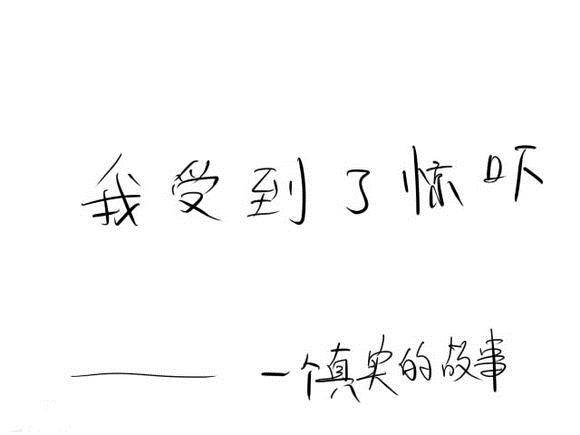 我受到了惊吓
——一个真实的故事